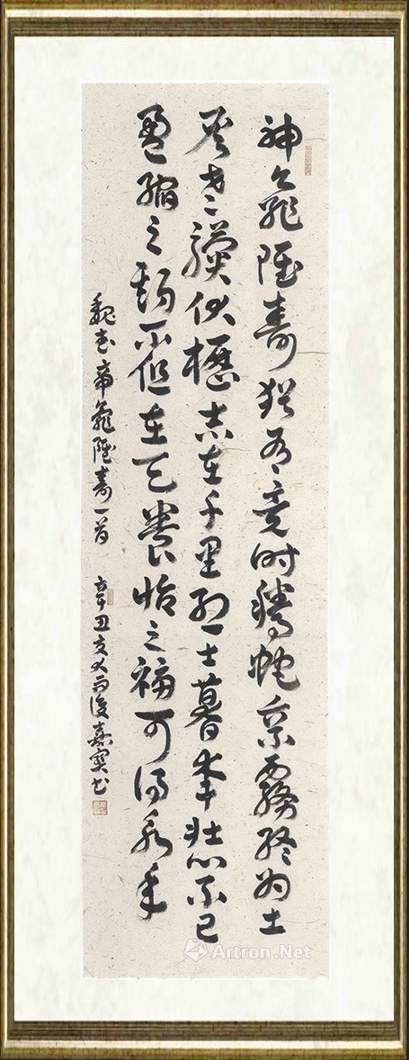 神龜雖壽猶有竟時騰蛇乘霧終為土
灰老驥伏櫪志在千里烈士暮年壯心不已
盈縮之期不但在天養怡之福可得永年
魏武帝龜雖壽一首 辛丑 雨後嘉 书
Artron.Net